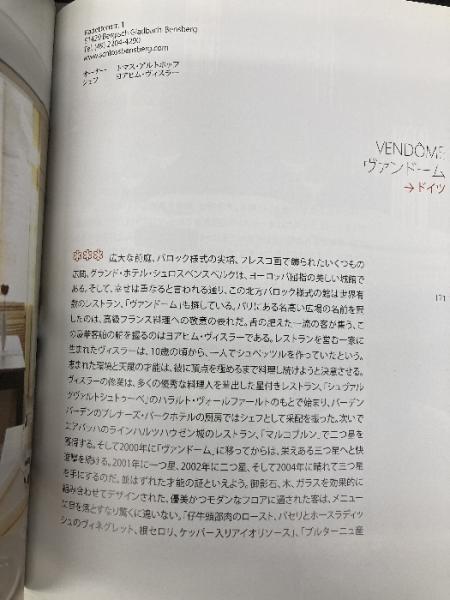 Kadettenstr. 1
51429 Bergisch Gladbach-Bensberg
Tel (49) 2204-4290
www.schlossbensberg.com
オーナー トマス・アルトホッフ
シェフ ヨアヒム・ヴィスラー
VENDÔME
ヴァンドーム
→ドイツ
広大な前庭、バロック様式の尖塔、フレスコ画で飾られたいくつもの
広間。グランド・ホテル・シュロスベンスベルクは、ヨーロッパ屈指の美しい城館で
ある。そして、幸せは重なると言われる通り、この北方バロック様式の館は世界有
数のレストラン、「ヴァンドーム」も擁している。パリにある名高い広場の名前を冠
したのは、高級フランス料理への敬意の表れだ。舌の肥えた一流の客が集う、こ
の豪華客船の舵を握るのはヨアヒム・ヴィスラーである。レストランを営む一家に
生まれたヴィスラーは、10歳の頃から、一人でシュペッツルを作っていたという。
恵まれた環境と天賦の才能は、彼に頂点を極めるまで料理し続けようと決意させる。
ヴィスラーの修業は、多くの優秀な料理人を輩出した星付きレストラン、「シュヴァル
ツヴァルトシュトゥーベ」のハラルト・ヴォールファールトのもとで始まり、バーデン
バーデンのブレナーズ・パークホテルの厨房ではシェフとして采配を振った。次いで
エアバッハのラインハルツハウゼン城のレストラン、「マルコブルン」で二つ星を
獲得する。そして2000年に「ヴァンドーム」に移ってからは、栄えある三つ星へと快
進撃を続ける。2001年に一つ星、2002年に二つ星、そして2004年に晴れて三つ星
を手にするのだ。並はずれた才能の証といえよう。御影石、木、ガラスを効果的に
組み合わせてデザインされた、優美かつモダンなフロアに通された客は、メニュー
に目を落とすなり驚くに違いない。「仔牛頭部肉のロースト、パセリとホースラディッ
シュのヴィネグレット、根セロリ、ケッパー入りアイオリソース」、「ブルターニュ産
171